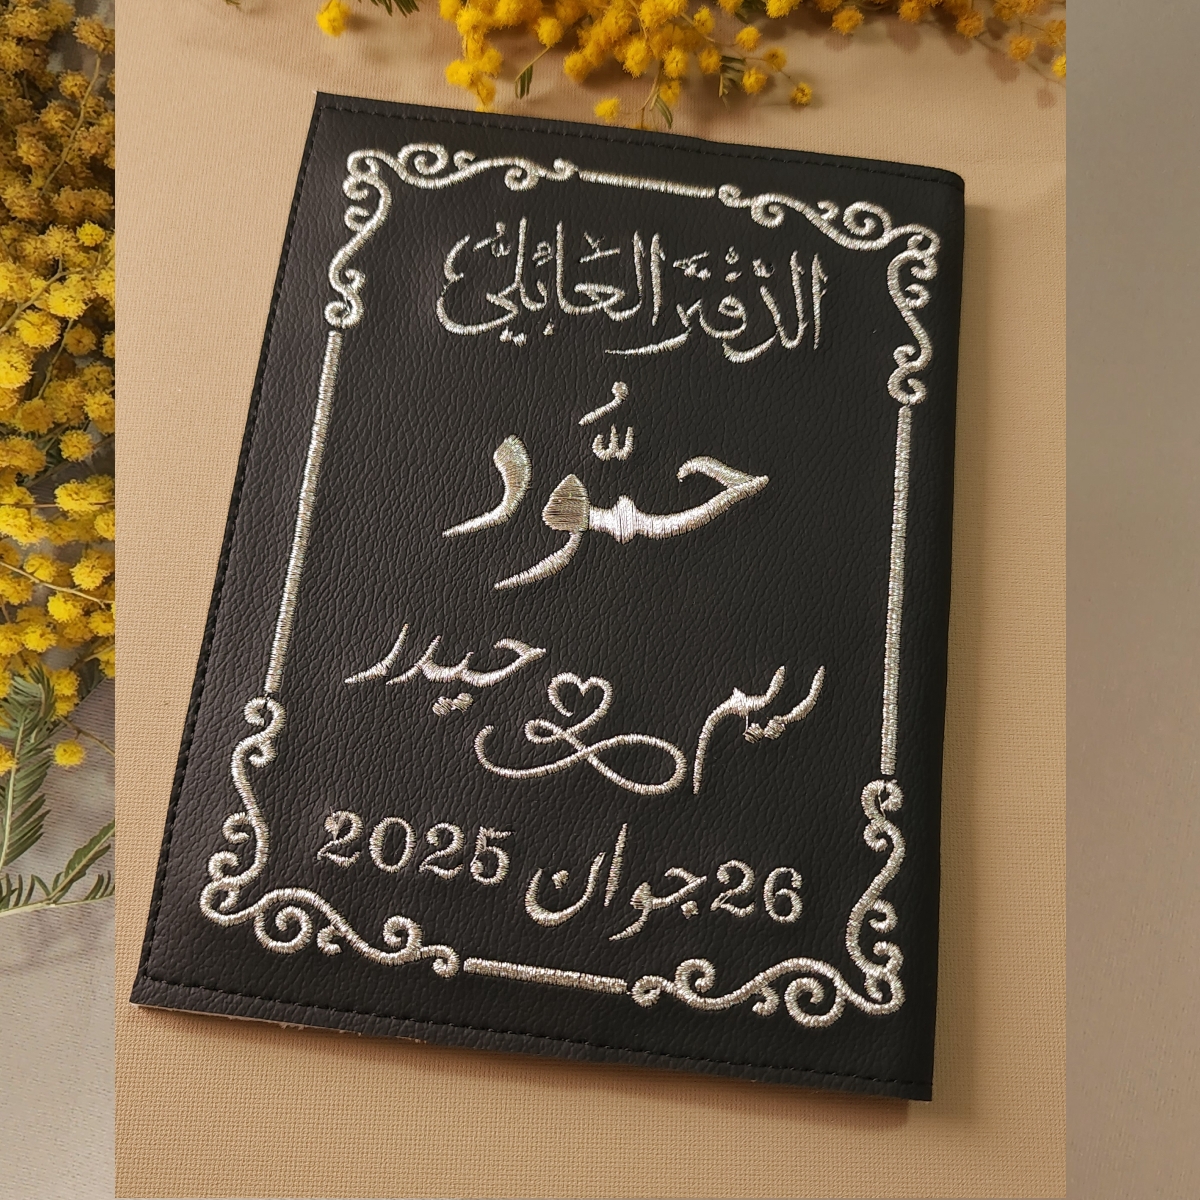 الدّفتر العائليّ
حمّود
ريم حيدر
26 جوان 2025